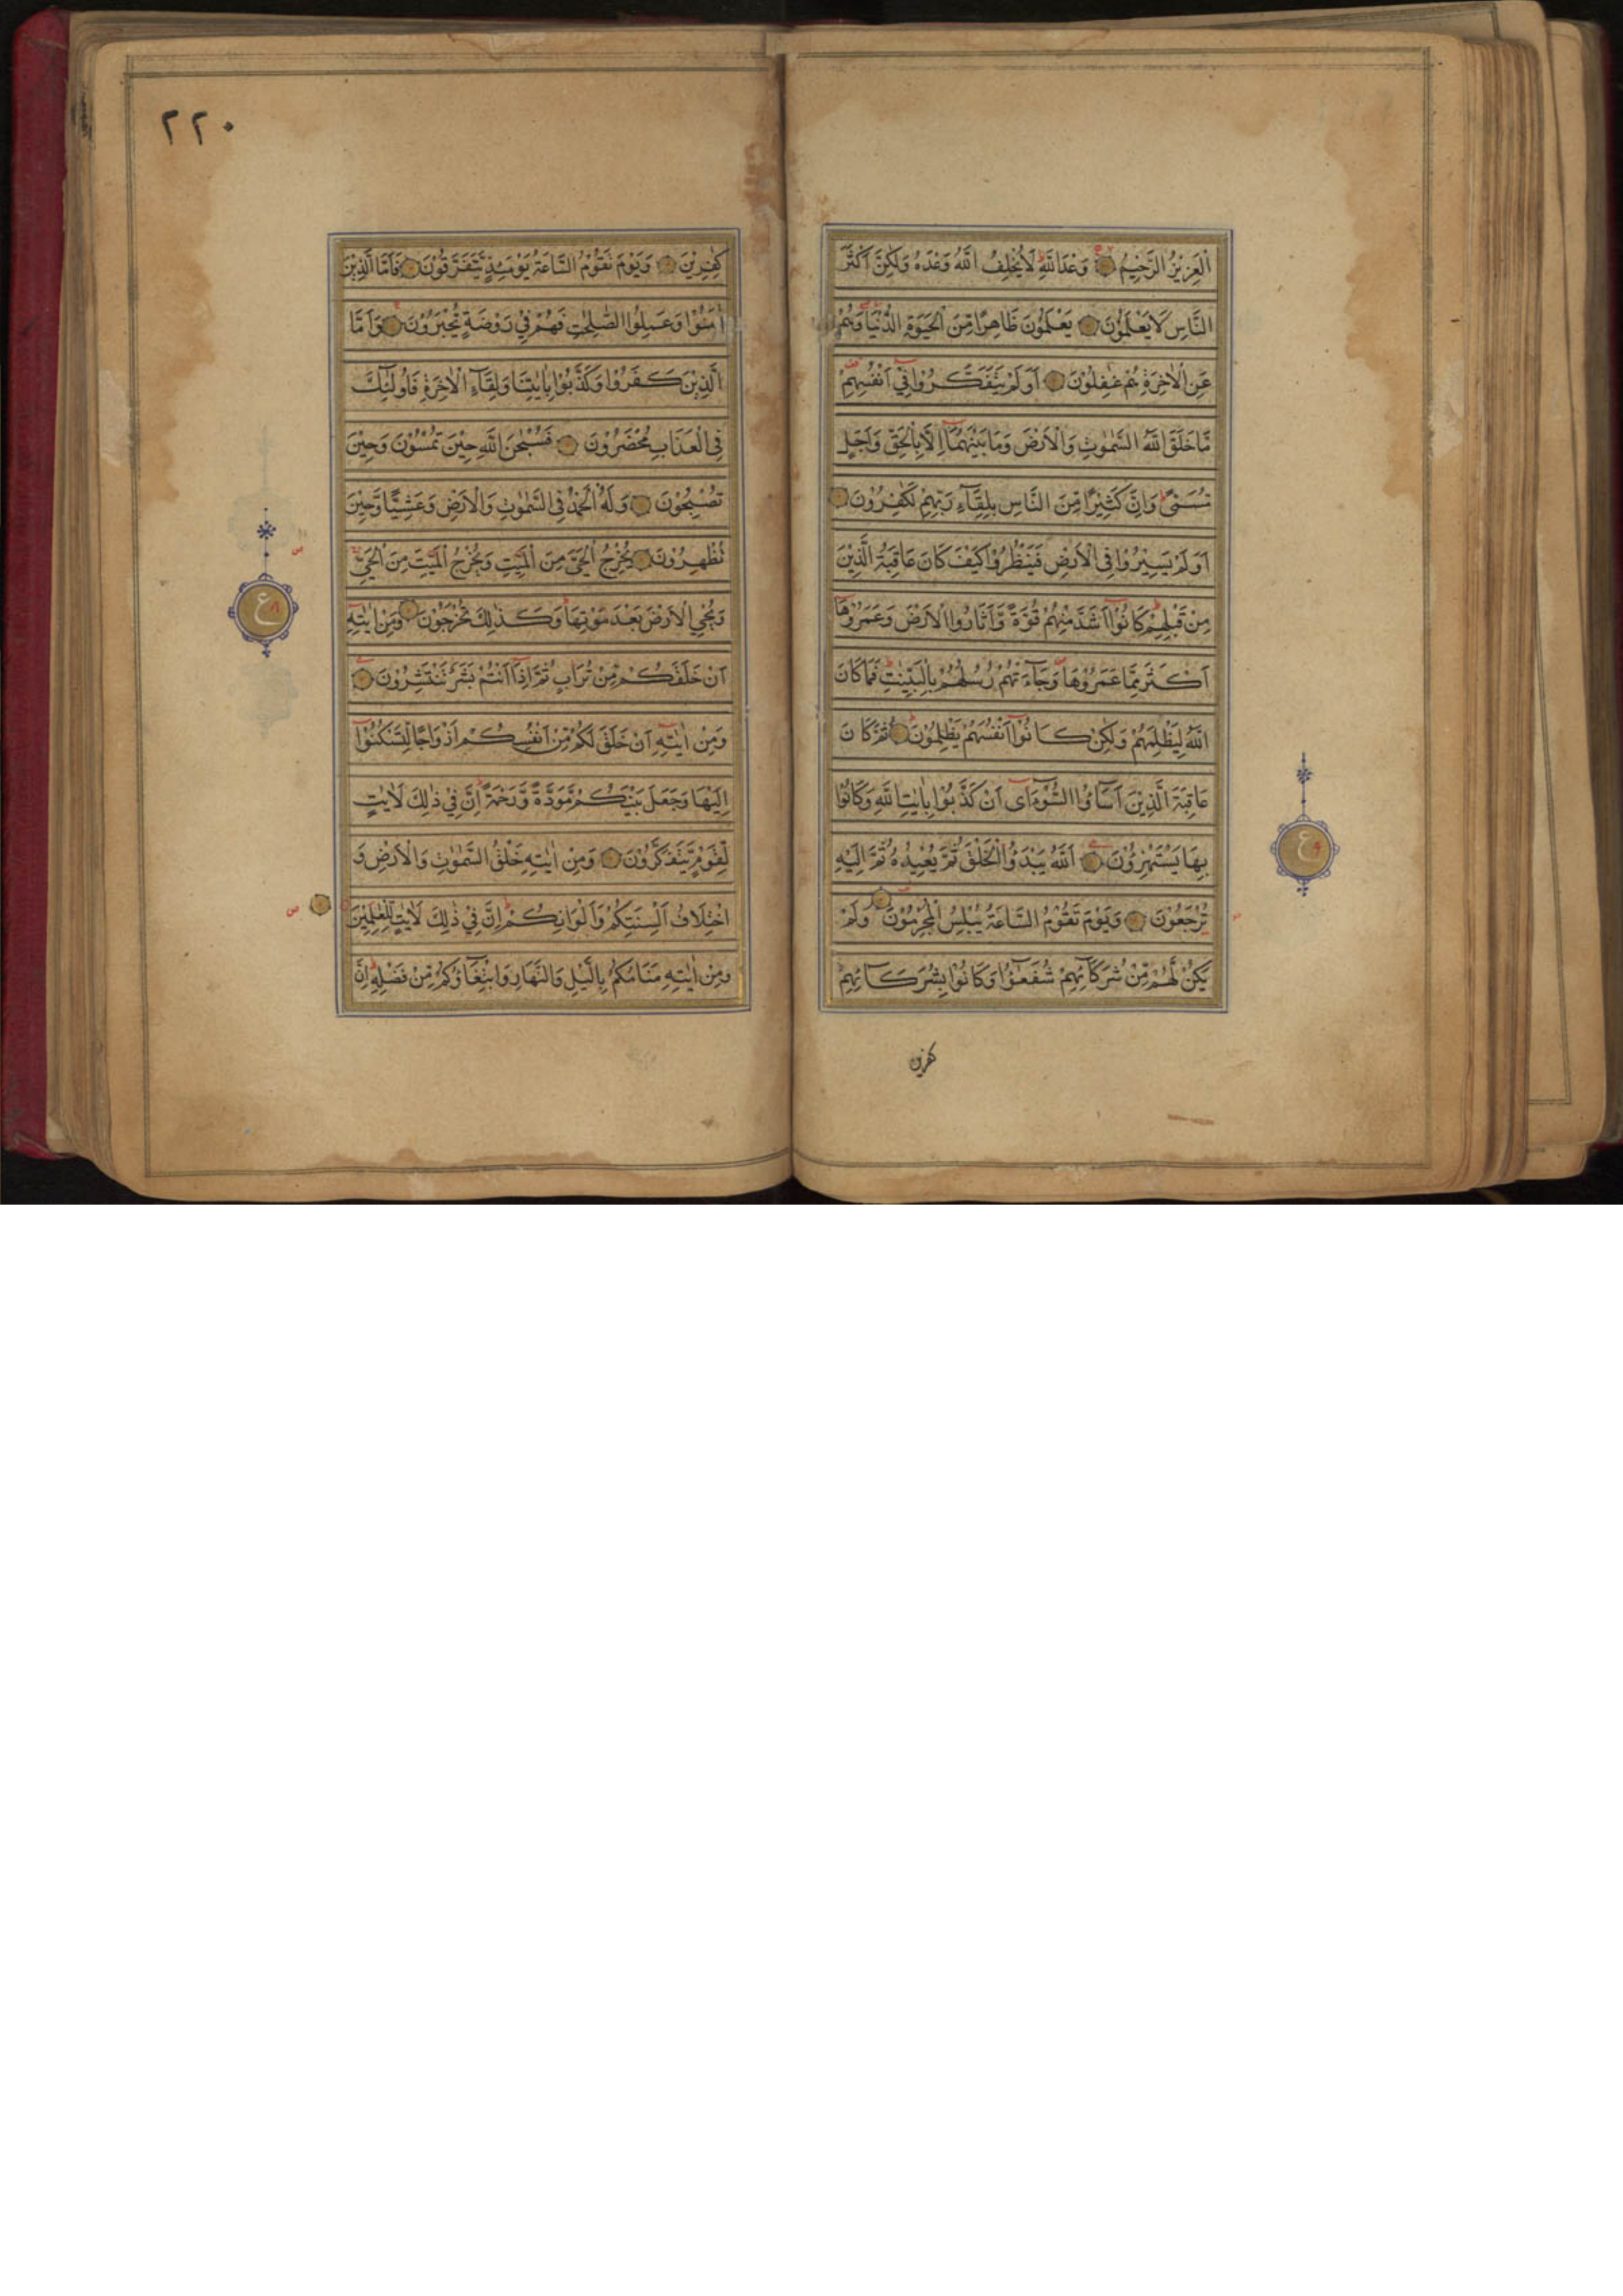 الْعَزِيْزُ الرَّحِيْمُ وَعْدَ اللّٰهِ لَا يُخْلِفُ اللّٰهُ وَعْدَهُ وَلٰكِنَّ اَكْثَرَ
النَّاسِ لَا يَعْلَمُوْنَ يَعْلَمُوْنَ ظَاهِرًا مِّنَ الْحَيٰوةِ الدُّنْيَا وَهُمْ
عَنِ الْاٰخِرَةِ هُمْ غٰفِلُوْنَ اَوَلَمْ يَتَفَكَّرُوْا فِيْ اَنْفُسِهِمْ
مَّا خَلَقَ اللّٰهُ السَّمٰوٰتِ وَالْاَرْضَ وَمَا بَيْنَهُمَا اِلَّا بِالْحَقِّ وَاَجَلٍ
مُّسَمًّى وَاِنَّ كَثِيْرًا مِّنَ النَّاسِ بِلِقَآءِ رَبِّهِمْ لَكٰفِرُوْنَ
اَوَلَمْ يَسِيْرُوْا فِى الْاَرْضِ فَيَنْظُرُوْا كَيْفَ كَانَ عَاقِبَةُ الَّذِيْنَ
مِنْ قَبْلِهِمْ كَانُوْا اَشَدَّ مِنْهُمْ قُوَّةً وَّاَثَارُوا الْاَرْضَ وَعَمَرُوْهَا
اَكْثَرَ مِمَّا عَمَرُوْهَا وَجَآءَتْهُمْ رُسُلُهُمْ بِالْبَيِّنٰتِ فَمَا كَانَ
اللّٰهُ لِيَظْلِمَهُمْ وَلٰكِنْ كَانُوْا اَنْفُسَهُمْ يَظْلِمُوْنَ ثُمَّ كَانَ
عَاقِبَةَ الَّذِيْنَ اَسَآءُوا السُّوْٓاٰى اَنْ كَذَّبُوْا بِاٰيٰتِ اللّٰهِ وَكَانُوْا
بِهَا يَسْتَهْزِءُوْنَ اَللّٰهُ يَبْدَؤُا الْخَلْقَ ثُمَّ يُعِيْدُهُ ثُمَّ اِلَيْهِ
تُرْجَعُوْنَ وَيَوْمَ تَقُوْمُ السَّاعَةُ يُبْلِسُ الْمُجْرِمُوْنَ وَلَمْ
يَكُنْ لَّهُمْ مِّنْ شُرَكَآئِهِمْ شُفَعٰٓؤُا وَكَانُوْا بِشُرَكَآئِهِمْ
كفرين
ع
٢٢٠
كٰفِرِيْنَ وَيَوْمَ تَقُوْمُ السَّاعَةُ يَوْمَئِذٍ يَّتَفَرَّقُوْنَ فَاَمَّا الَّذِيْنَ
اٰمَنُوْا وَعَمِلُوا الصّٰلِحٰتِ فَهُمْ فِيْ رَوْضَةٍ يُّحْبَرُوْنَ وَاَمَّا
الَّذِيْنَ كَفَرُوْا وَكَذَّبُوْا بِاٰيٰتِنَا وَلِقَآءِ الْاٰخِرَةِ فَاُولٰٓئِكَ
فِى الْعَذَابِ مُحْضَرُوْنَ فَسُبْحٰنَ اللّٰهِ حِيْنَ تُمْسُوْنَ وَحِيْنَ
تُصْبِحُوْنَ وَلَهُ الْحَمْدُ فِى السَّمٰوٰتِ وَالْاَرْضِ وَعَشِيًّا وَّحِيْنَ
تُظْهِرُوْنَ يُخْرِجُ الْحَيَّ مِنَ الْمَيِّتِ وَيُخْرِجُ الْمَيِّتَ مِنَ الْحَيِّ
وَيُحْيِ الْاَرْضَ بَعْدَ مَوْتِهَا وَكَذٰلِكَ تُخْرَجُوْنَ وَمِنْ اٰيٰتِهٖ
اَنْ خَلَقَكُمْ مِّنْ تُرَابٍ ثُمَّ اِذَا اَنْتُمْ بَشَرٌ تَنْتَشِرُوْنَ
وَمِنْ اٰيٰتِهٖ اَنْ خَلَقَ لَكُمْ مِّنْ اَنْفُسِكُمْ اَزْوَاجًا لِّتَسْكُنُوْا
اِلَيْهَا وَجَعَلَ بَيْنَكُمْ مَّوَدَّةً وَّرَحْمَةً اِنَّ فِيْ ذٰلِكَ لَاٰيٰتٍ
لِّقَوْمٍ يَّتَفَكَّرُوْنَ وَمِنْ اٰيٰتِهٖ خَلْقُ السَّمٰوٰتِ وَالْاَرْضِ وَ
اخْتِلَافُ اَلْسِنَتِكُمْ وَاَلْوَانِكُمْ اِنَّ فِيْ ذٰلِكَ لَاٰيٰتٍ لِّلْعٰلِمِيْنَ
وَمِنْ اٰيٰتِهٖ مَنَامُكُمْ بِالَّيْلِ وَالنَّهَارِ وَابْتِغَآؤُكُمْ مِّنْ فَضْلِهٖ اِنَّ
ع